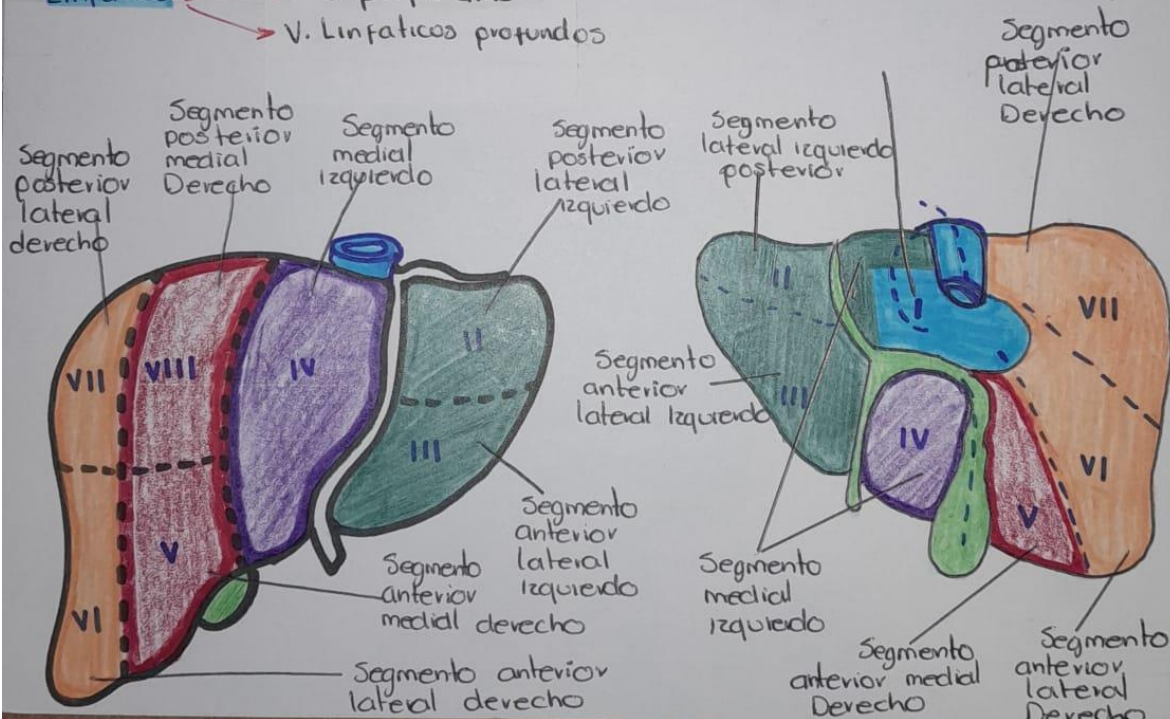 V. Linfaticos profundos
Segmento
posterior
lateral
derecho
Segmento
posterior
medial
Derecho
Segmento
medial
Izquierdo
Segmento
posterior
lateral
Izquierdo
VII
VIII
IV
II
III
V
VI
Segmento
anterior
lateral
Izquierdo
Segmento
anterior
medial derecho
Segmento anterior
lateral derecho
Segmento
lateral izquierdo
posterior
Segmento
posterior
lateral
Derecho
II
I
VII
Segmento
anterior
lateral Izquierdo
III
IV
VI
V
Segmento
medial
Izquierdo
Segmento
anterior medial
Derecho
Segmento
anterior
lateral
Derecho